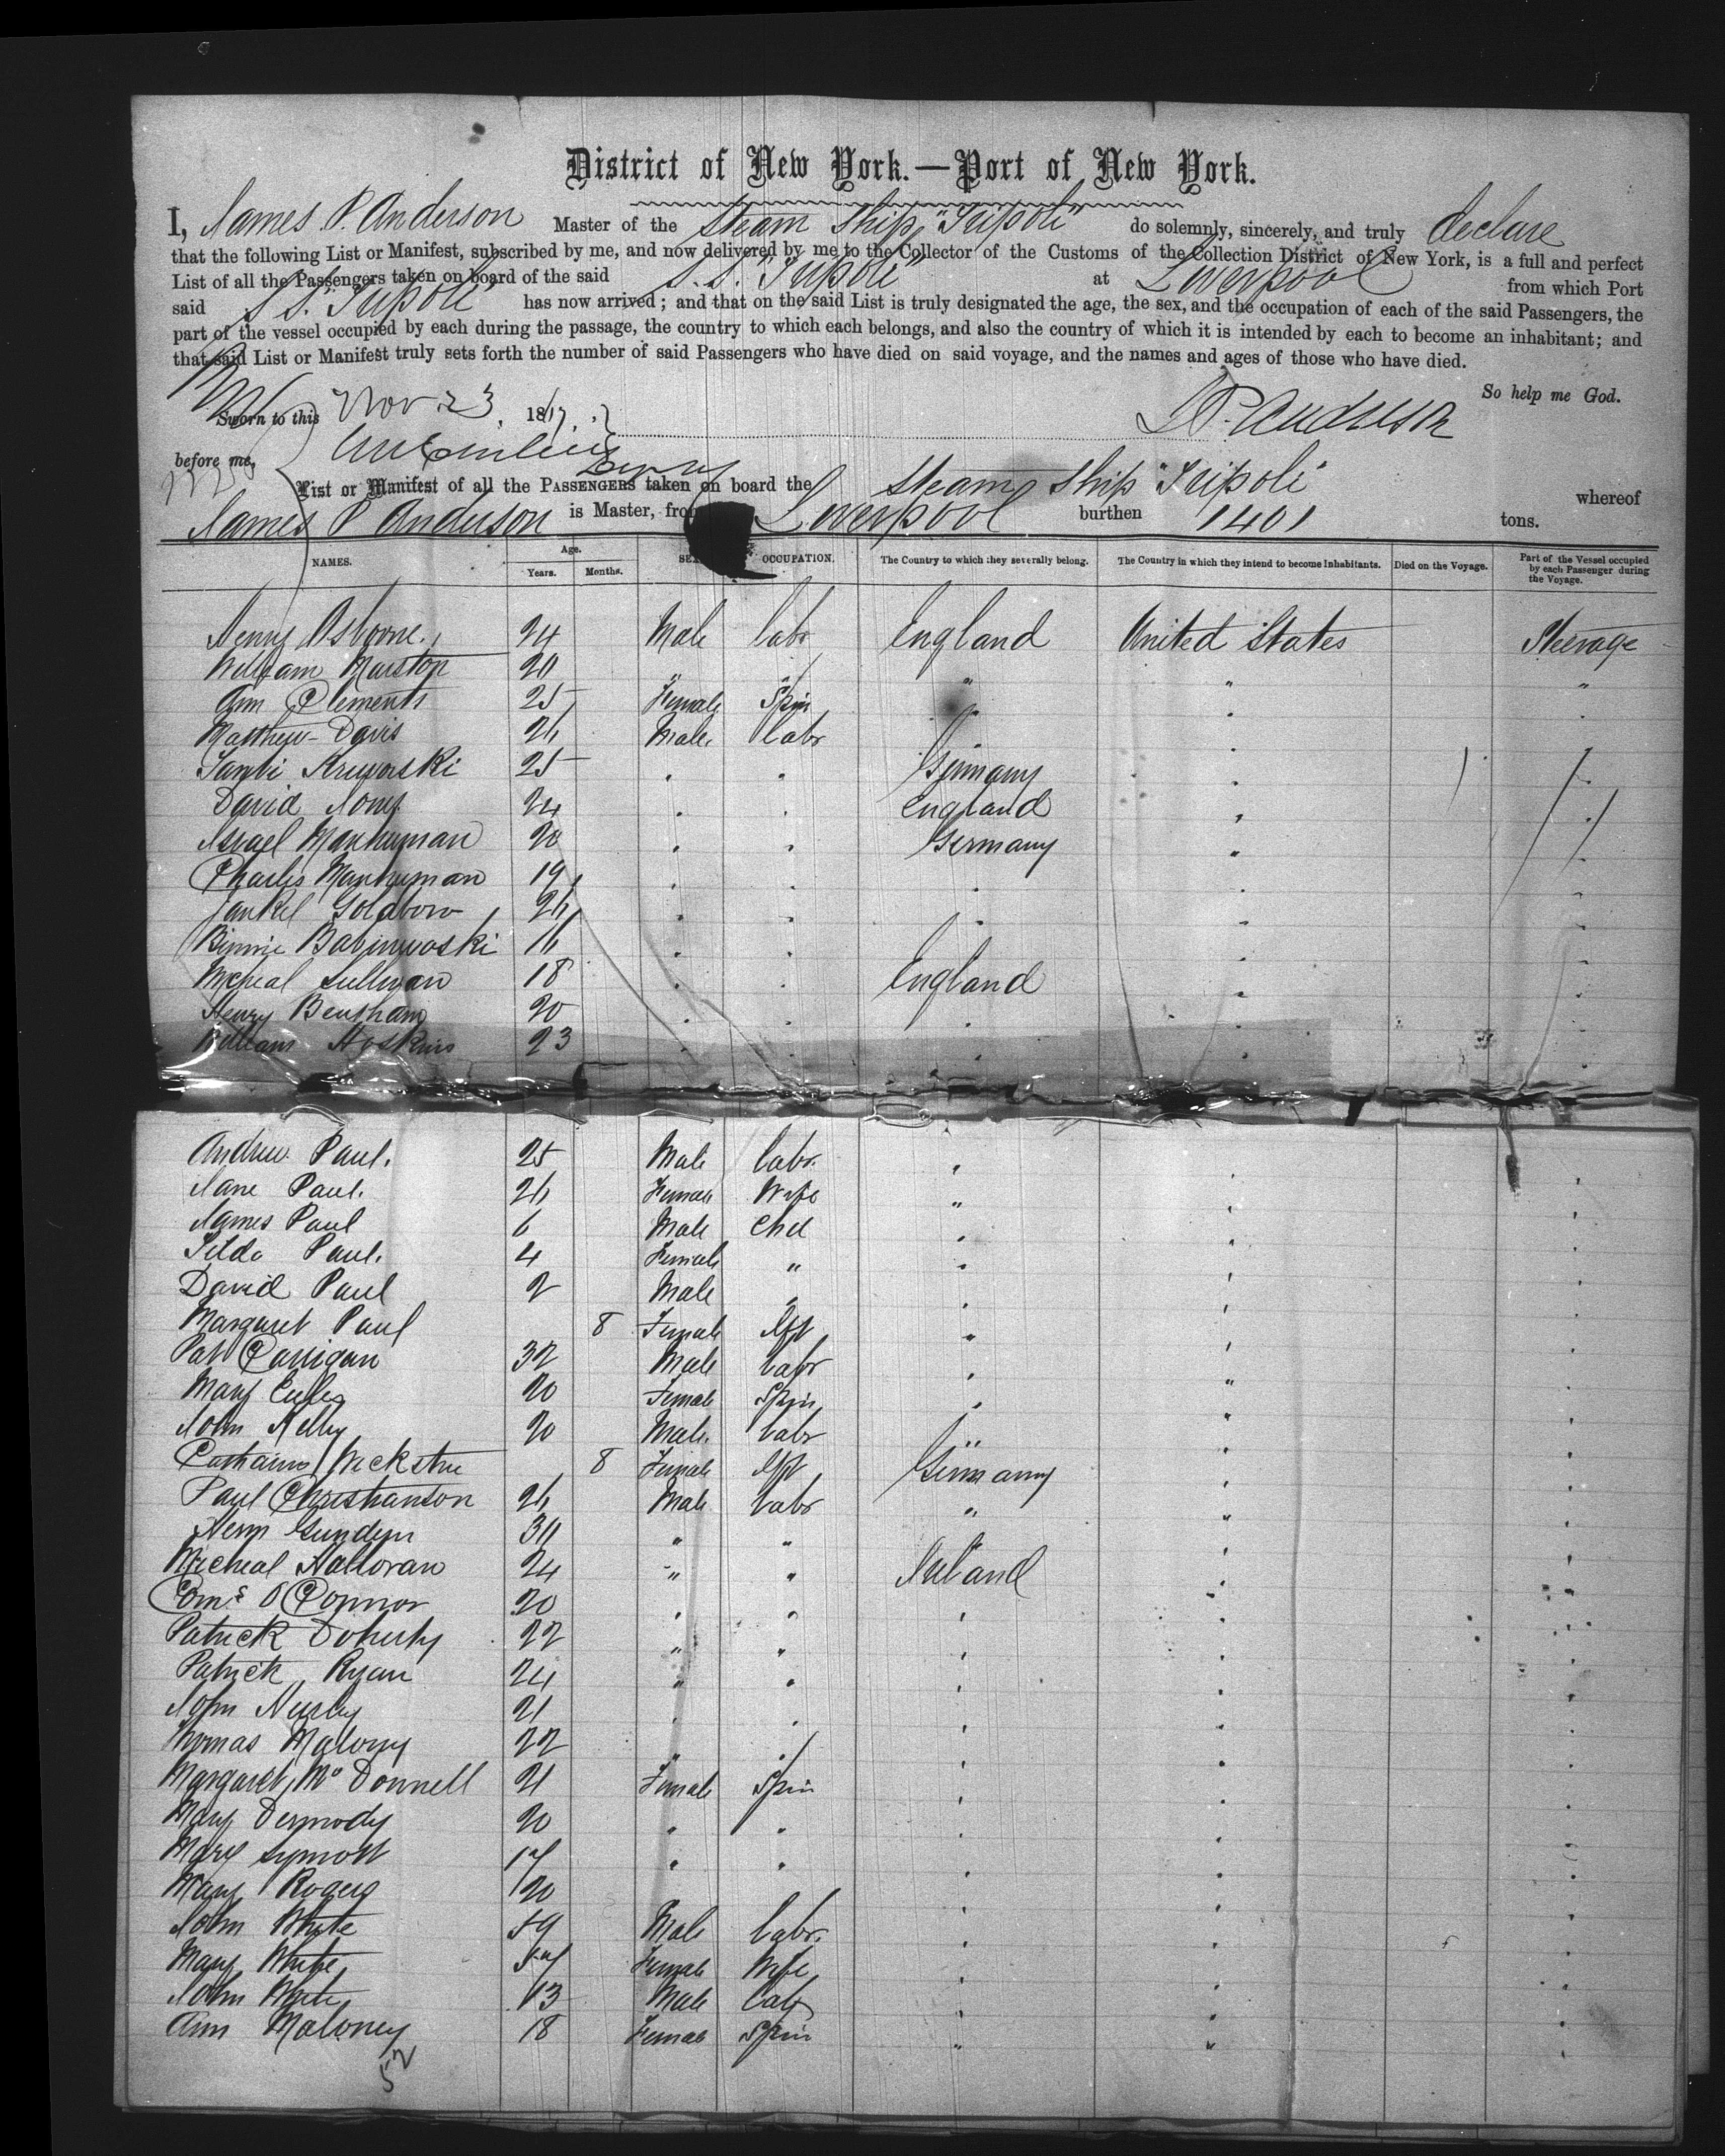 District of New York.—Port of New York.
I, James P. Anderson Master of the Steam Ship "Tripoli" do solemnly, sincerely, and truly declare
that the following List or Manifest, subscribed by me, and now delivered by me to the Collector of the Customs of the Collection District of New York, is a full and perfect
List of all the Passengers taken on board of the said S.S. "Tripoli" at Liverpool from which Port
said S.S. "Tripoli" has now arrived; and that on the said List is truly designated the age, the sex, and the occupation of each of the said Passengers, the
part of the vessel occupied by each during the passage, the country to which each belongs, and also the country of which it is intended by each to become an inhabitant; and
that said List or Manifest truly sets forth the number of said Passengers who have died on said voyage, and the names and ages of those who have died.
So help me God.
Sworn to this Nov 23 1867 J P. Anderson
before me,
List or Manifest of all the PASSENGERS taken on board the Steam Ship "Tripoli" whereof
James P Anderson is Master, from Liverpool burthen 1401 tons.
NAMES. Age. Years. Months. SEX OCCUPATION. The Country to which they severally belong. The Country in which they intend to become Inhabitants. Died on the Voyage. Part of the Vessel occupied by each Passenger during the Voyage.
Henry Osborne. 24 Male labr England United States Steerage
William Marston 20 " " " " "
Ann Clements 25 Female Spin " " "
Matthew Davis 26 Male labr " " "
25 " " Germany " "
David Jones 24 " " England " "
Israel 20 " " Germany " "
Charles 19 " " " " "
Jankel 26 " " " " "
16 " " " " "
Micheal Sullivan 18 " " England " "
Henry Bentham 20 " " " " "
William Hoskins 23 " " " " "
Andrew Paul. 25 Male labr. " " "
Jane Paul. 26 Female Wife " " "
James Paul 6 Male Chd " " "
Tilda Paul. 4 Female " " " "
David Paul 2 Male " " " "
Margaret Paul 8 Female Inft " " "
Pat Carrigan 32 Male labr " " "
Mary 20 Female Spin " " "
John Kelly 20 Male. labr " " "
8 Female Inft Germany " "
Paul Christianson 26 Male labr " " "
30 " " " " "
Micheal Halloran 24 " " Ireland " "
Corns O'Connor 20 " " " " "
Patrick Doherty 22 " " " " "
Patrick Ryan 24 " " " " "
John 21 " " " " "
Thomas Malony 22 " " " " "
Margaret McDonnell 21 Female Spin " " "
Mary Dermody 20 " " " " "
Mary 17 " " " " "
Mary Rogers 20 " "
John White 59 Male labr. " " "
Mary White 57 Female Wife " " "
John White 13 Male lab " " "
Ann Maloney 18 Female Spin " " "
52